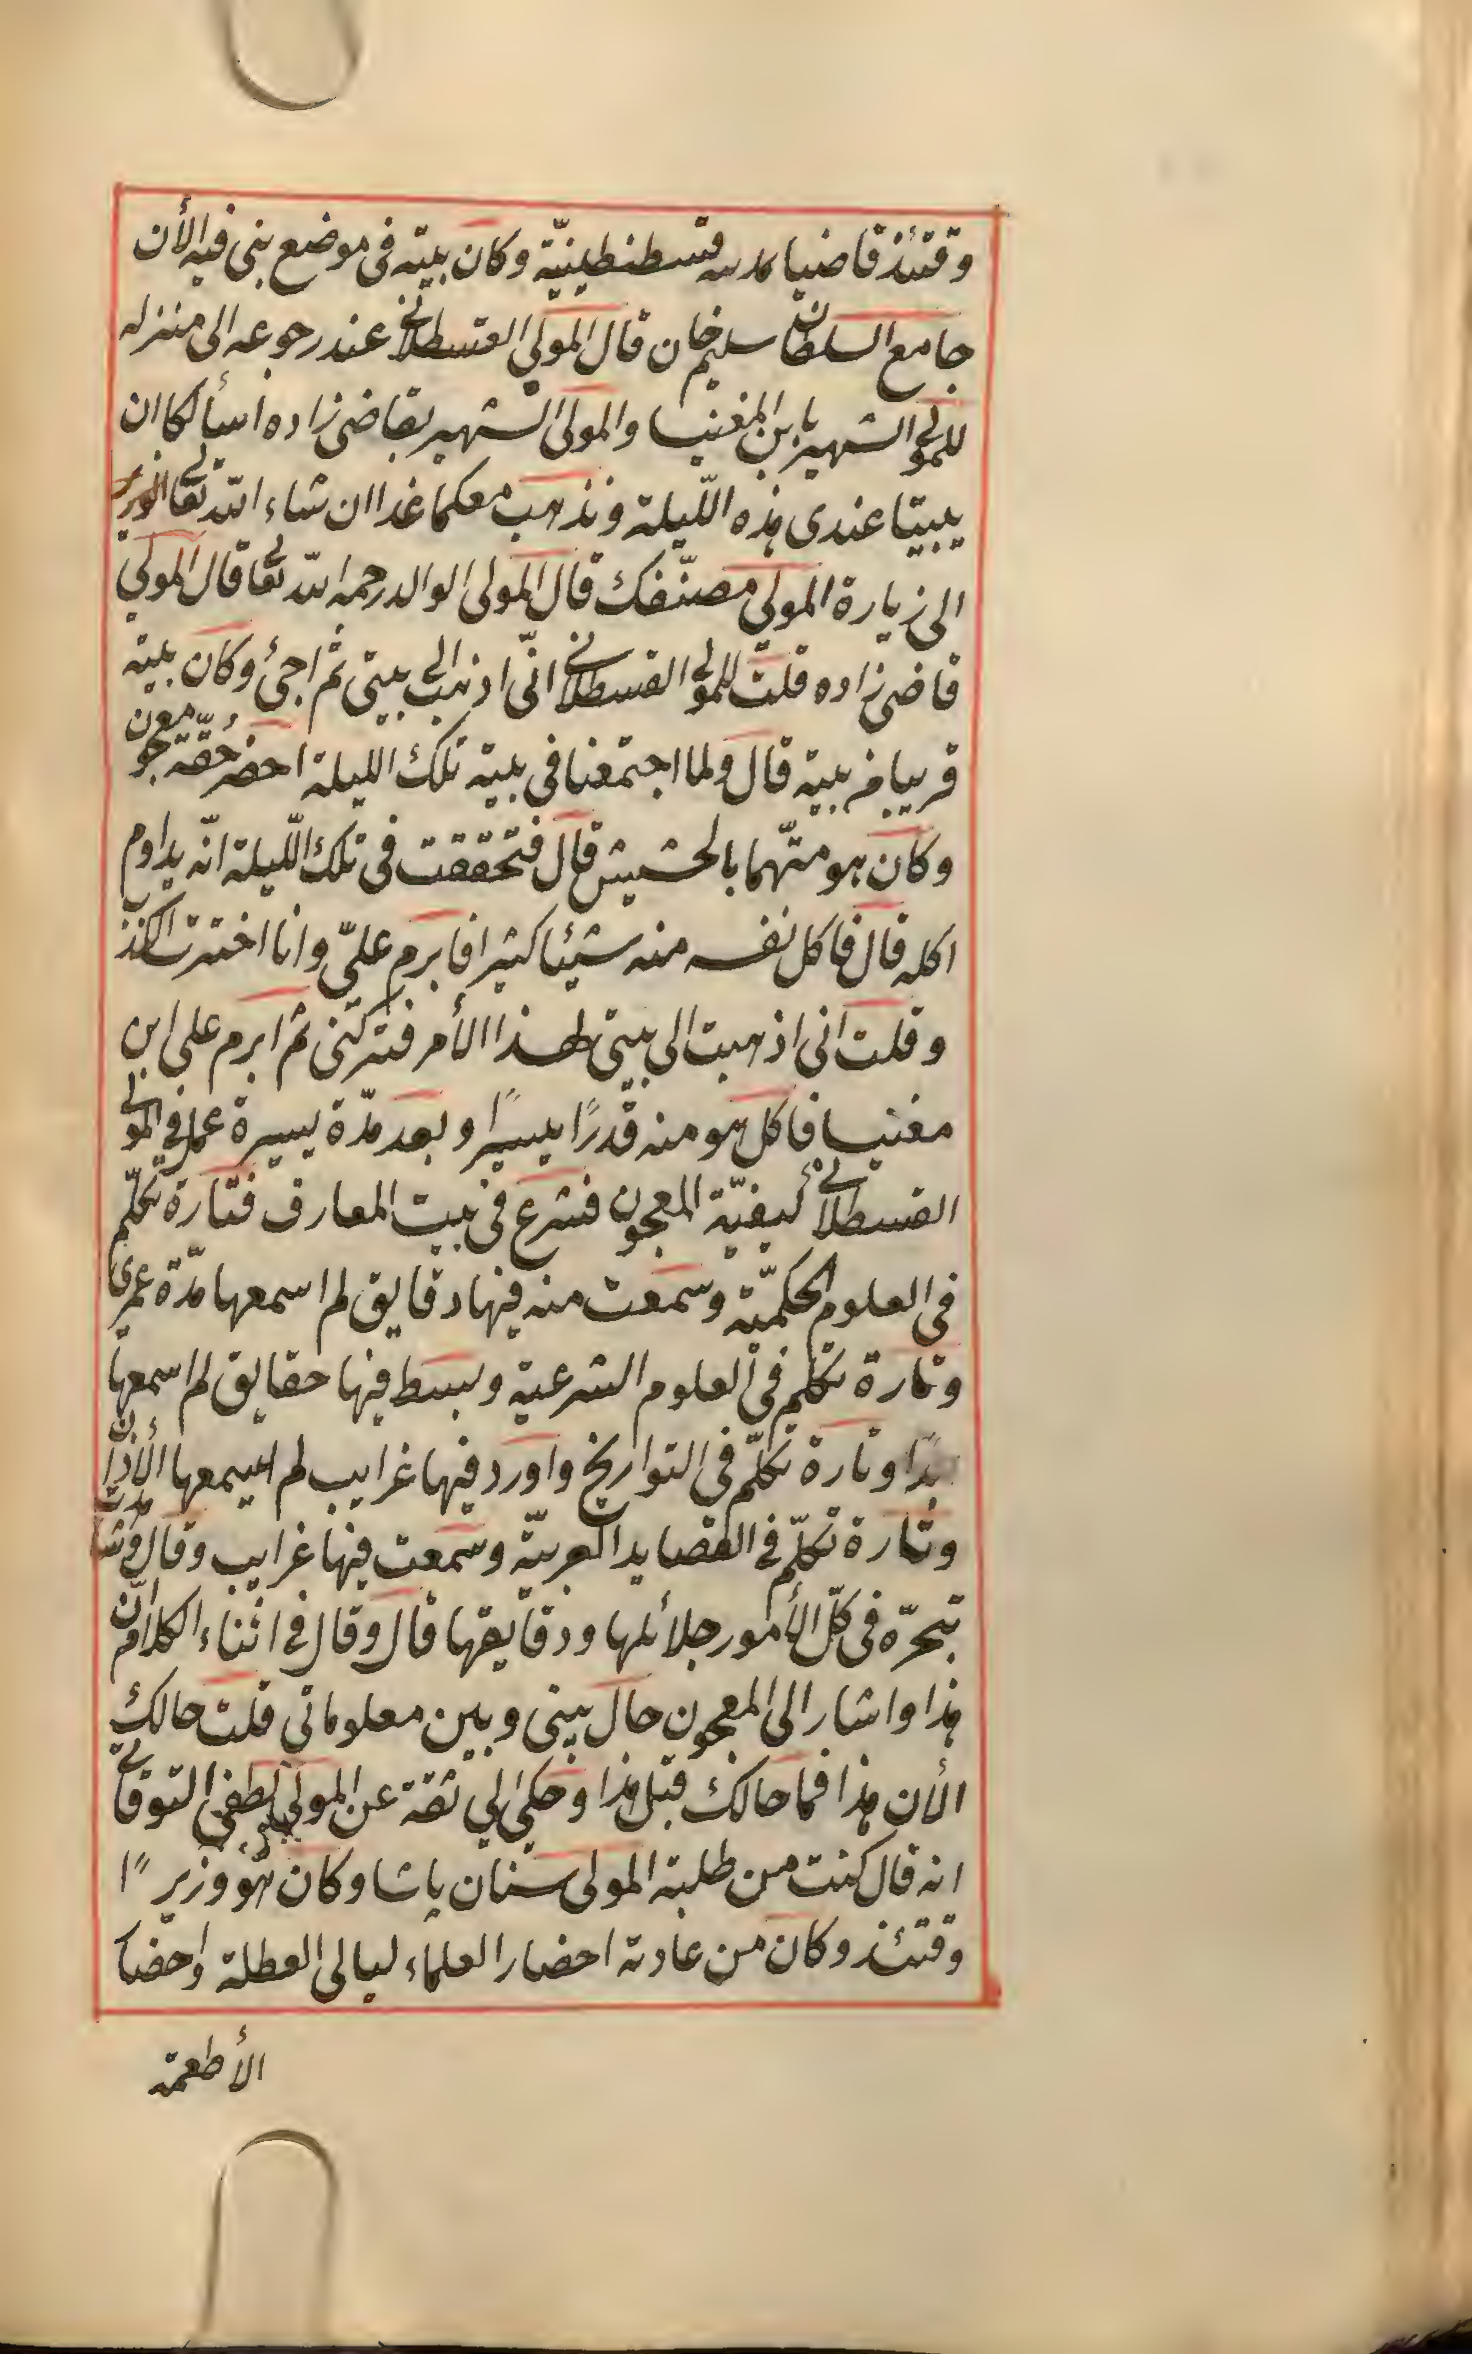 وقتئذ قاضيا بمدينه قسطنطينيّة وكان بيته فى موضع بنى فيه الأن
جامع السلطان سليم خان قال المولى القسطلانى عند رجوعه الى منزله
للمولى الشهير بابن المغنيسا والمولى الشهير بقاضى زاده أسألكما ان
يبيتا عندى هذه اللّيلة ونذهب معكما غدا ان شاء الله تعالى
الى زيارة المولى مصنّفك قال المولى الوالد رحمه الله تعالى قال المولى
قاضى زاده قلت للمولى القسطلانى انّى اذهب الى بيتى ثم اجئ وكان بيته
قريبا من بيته قال ولما اجتمعنا فى بيته تلك الليلة احضر حُقّة معجون
وكان هو متّهما بالحشيش قال فتحققت فى تلك اللّيلة انّه يداوم
اكله قال فاكل نفسه منه شيئا كثيرا فابرم علىّ وانا اخترت الكذب
وقلت انى اذهبت الى بيتى لهذا الأمر فتركنى ثم ابرم على ابن
مغنيسا فاكل هو منه قدرًا يسيرًا وبعد مدّة يسيرة عمل فى المولى
القسطلانى كيفيّة المعجون فشرع فى بيت المعارف فتارة تكلّم
فى العلوم الحكميّة وسمعت منه فيها دقايق لم اسمعها مدّة عمرى
وتارة تكلّم فى العلوم الشرعية وبسط فيها حقايق لم اسمعها
بدًا وتارة تكلّم فى التواريخ واورد فيها غرايب لم يسمعها الأذان
وتارة تكلّم فى القصايد العربيّة وسمعت فيها غرايب وقال وشاهدت
تبحرّه فى كلّ الأمور جلائلها ودقايقها قال وقال فى اثناء الكلام انّ
هذا واشار الى المعجون حال بينى وبين معلوماتى قلت حالك
الأن هذا فما حالك قبل هذا وحكى لى ثقة عن المولى لطفى التوقاتى
انه قال كنت من طلبة المولى سنان پاشا وكان هو وزيرًا
وقتئذ وكان من عادته احضار العلماء ليالى العطلة واحضار
الأطعمة